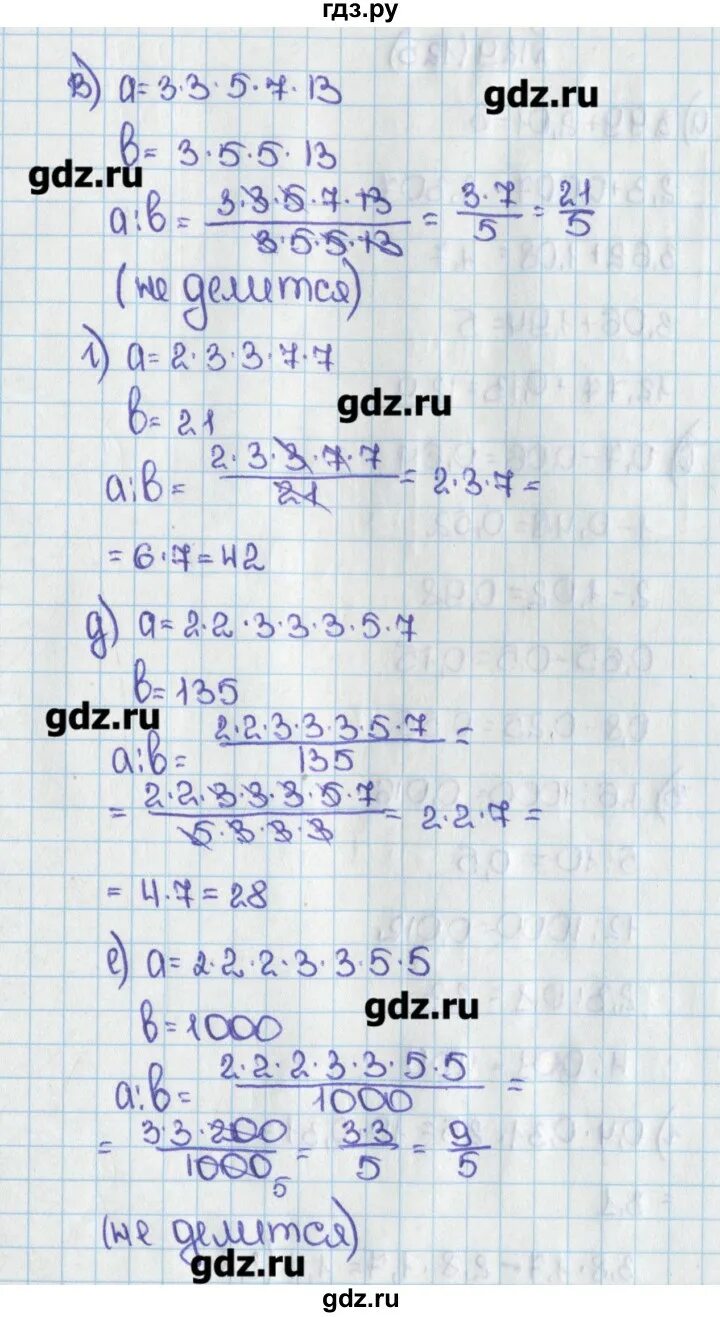 гдз.ру
в) a = 3·3·5·7·13
gdz.ru
b = 3·5·5·13
gdz.ru
a:b = 3·3·5·7·13 / 3·5·5·13 = 3·7 / 5 = 21 / 5
(не делится)
г) a = 2·3·3·7·7
gdz.ru
b = 21
a:b = 2·3·3·7·7 / 21 = 2·3·7 =
= 6·7 = 42
д) a = 2·2·3·3·3·5·7
b = 135
gdz.ru
a:b = 2·2·3·3·3·5·7 / 135 =
= 2·2·3·3·3·5·7 / 5·3·3·3 = 2·2·7 =
= 4·7 = 28
е) a = 2·2·2·3·3·5·5
gdz.ru
b = 1000
a:b = 2·2·2·3·3·5·5 / 1000 =
= 3·3·200 / 1000 5 = 3·3 / 5 = 9 / 5
(не делится)
gdz.ru
gdz.ru